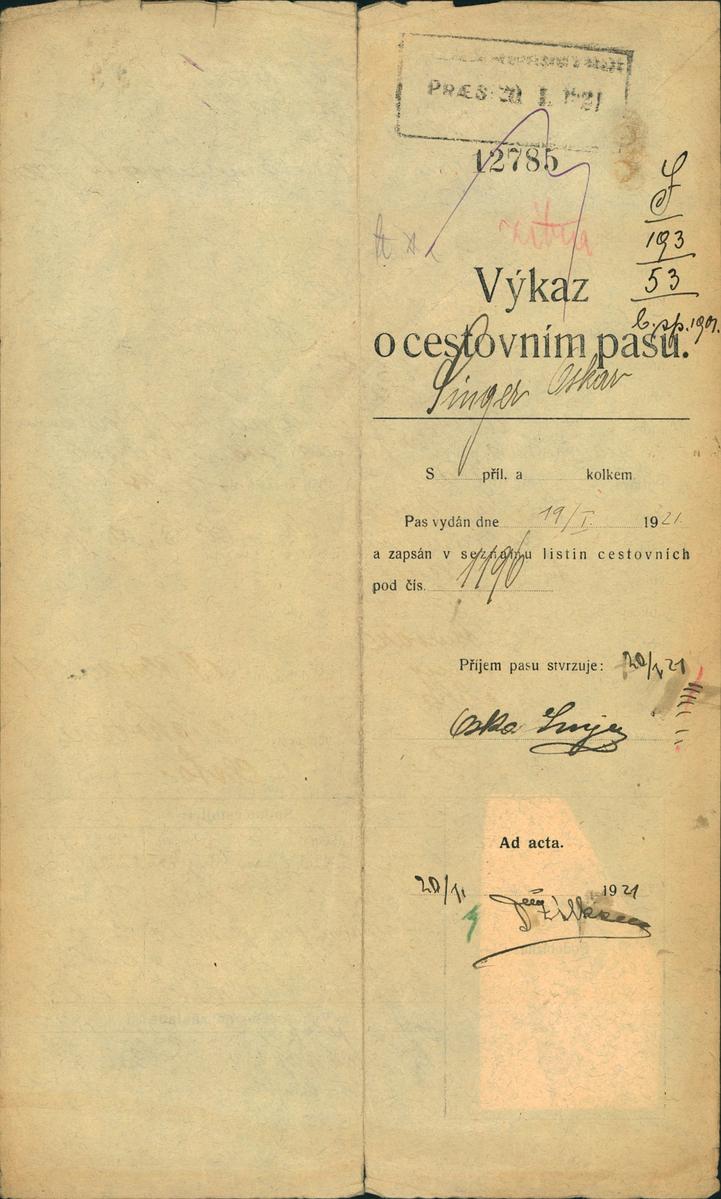 PRÆS. 20 I. 1921
12785
S
193
53
zítra
Výkaz
b. sp. 1901.
o cestovním pasu.
Singer Oskar
S příl. a kolkem
Pas vydán dne 19/I. 1921.
a zapsán v seznamu listin cestovních
pod čís. 1196
Příjem pasu stvrzuje: 20/I 21
Oska Singer
Ad acta.
20/I. 1921